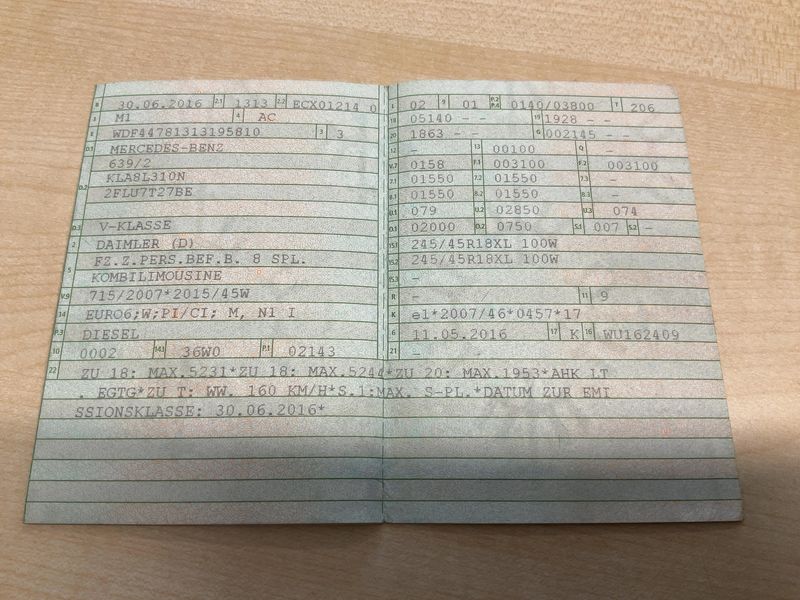 B 30.06.2016 2.1 1313 2.2 ECX01214 0
J M1 4 AC
E WDF44781313195810 3 3
D.1 MERCEDES-BENZ
639/2
D.2 KLA8L310N
2FLU7T27BE
D.3 V-KLASSE
2 DAIMLER (D)
5 FZ.Z.PERS.BEF.B. 8 SPL.
KOMBILIMOUSINE
V.9 715/2007*2015/45W
14 EURO6;W;PI/CI; M, N1 I
P.3 DIESEL
10 0002 14.1 36W0 P.1 02143
22 ZU 18: MAX.5231*ZU 18: MAX.5244*ZU 20: MAX.1953*AHK LT
. EGTG*ZU T: WW. 160 KM/H*S.1:MAX. S-PL.*DATUM ZUR EMI
SSIONSKLASSE: 30.06.2016*
L 02 9 01 P.2 P.4 0140/03800 T 206
18 05140 - - 19 1928 - -
20 1863 - - G 002145 - -
12 - 13 00100 Q -
V.7 0158 F.1 003100 F.2 003100
7.1 01550 7.2 01550 7.3 -
8.1 01550 8.2 01550 8.3 -
U.1 079 U.2 02850 U.3 074
O.1 02000 O.2 0750 S.1 007 S.2 -
15.1 245/45R18XL 100W
15.2 245/45R18XL 100W
15.3 -
R - 11 9
K e1*2007/46*0457*17
6 11.05.2016 17 K 16 WU162409
21 -